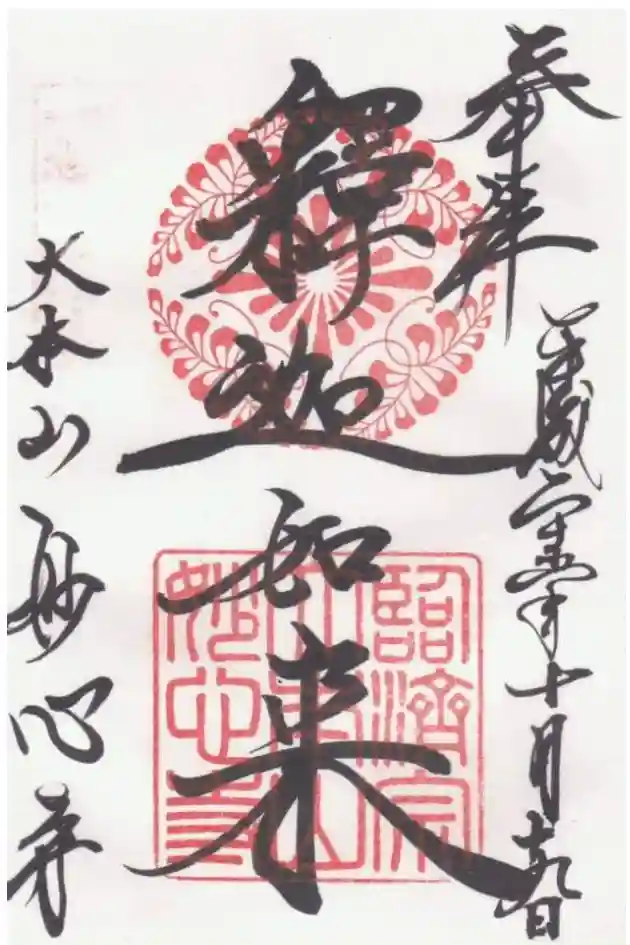 奉拝
平成二十五年十月十九日
釋迦如来
臨濟宗
大本山
妙心寺
大本山妙心寺